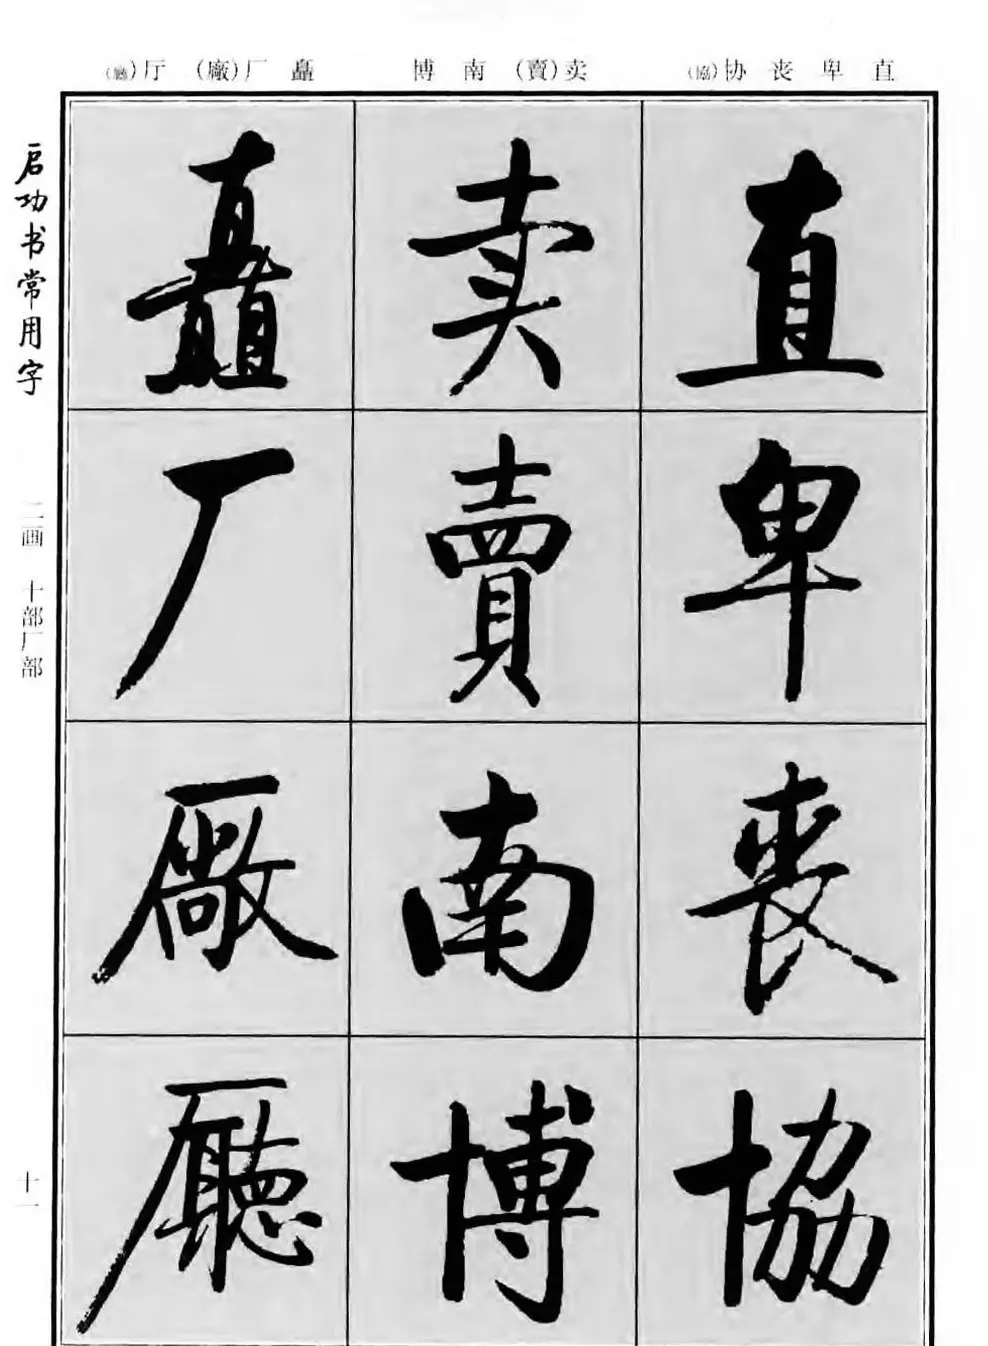 直 卑 丧 协(協)
卖(賣) 南 博
矗 厂(廠) 厅(廳)
直
卑
喪
協
卖
賣
南
博
矗
厂
廠
廳
启功书常用字
二画 十部厂部
十一